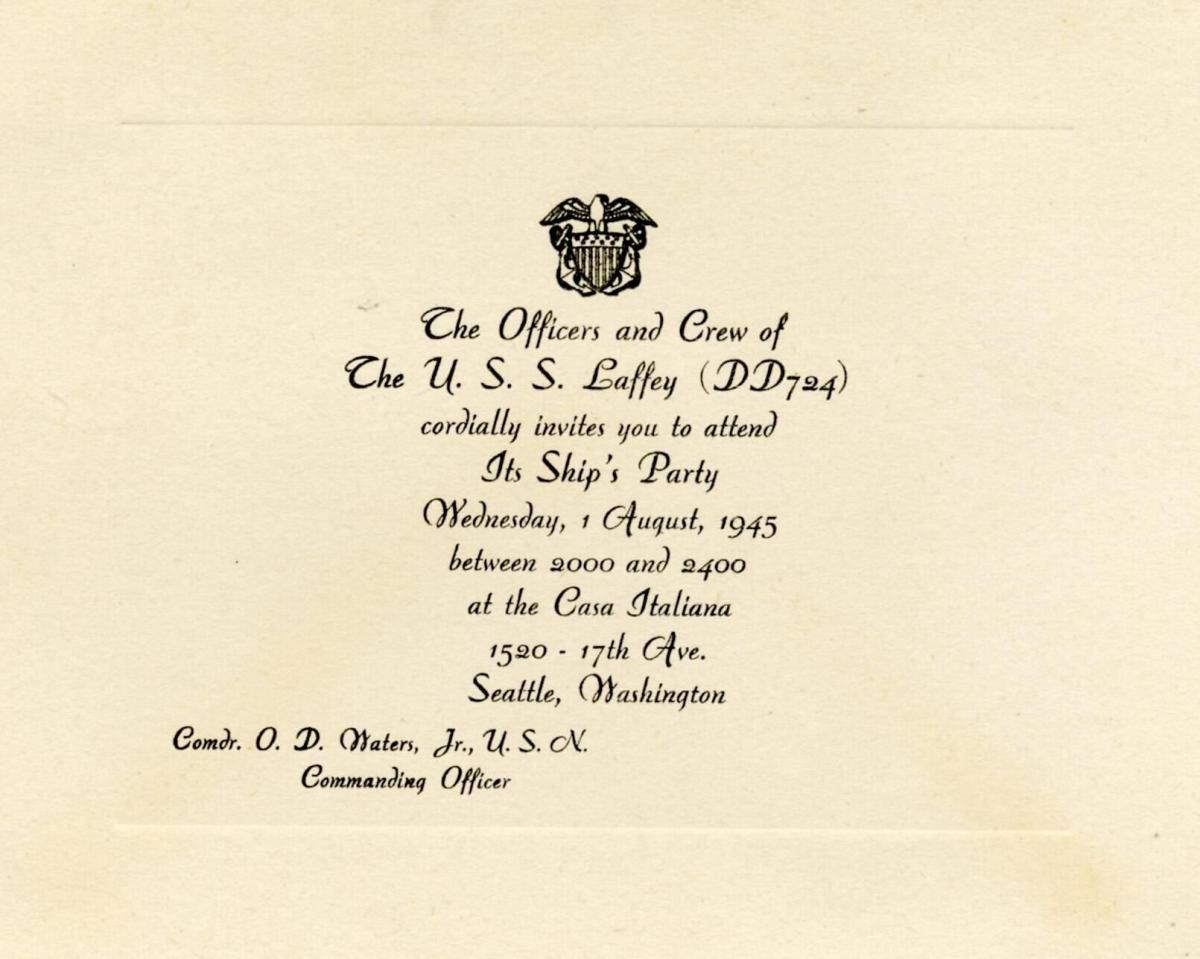 The Officers and Crew of
The U. S. S. Laffey (DD724)
cordially invites you to attend
Its Ship's Party
Wednesday, 1 August, 1945
between 2000 and 2400
at the Casa Italiana
1520 - 17th Ave.
Seattle, Washington
Comdr. O. D. Waters, Jr., U. S. N.
Commanding Officer